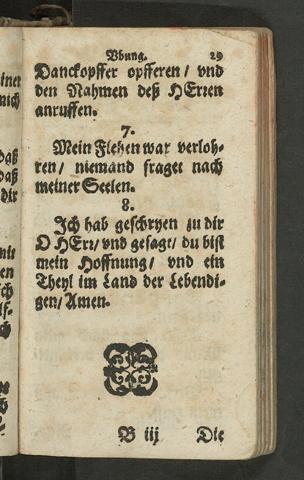 Vbung. 29
Danckopffer opfferen / vnd
den Nahmen deß HErren
anruffen.
7.
Mein Flehen war verloh-
ren / niemand fraget nach
meiner Seelen.
8.
Ich hab geschryen zu dir
O HErr / vnd gesagt / du bist
mein Hoffnung / vnd ein
Theyl im Land der Lebendi-
gen / Amen.
B iij Die